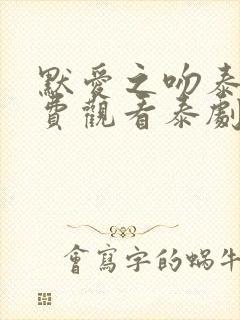 默愛之吻泰
費觀看泰劇
會寫字的蝸牛